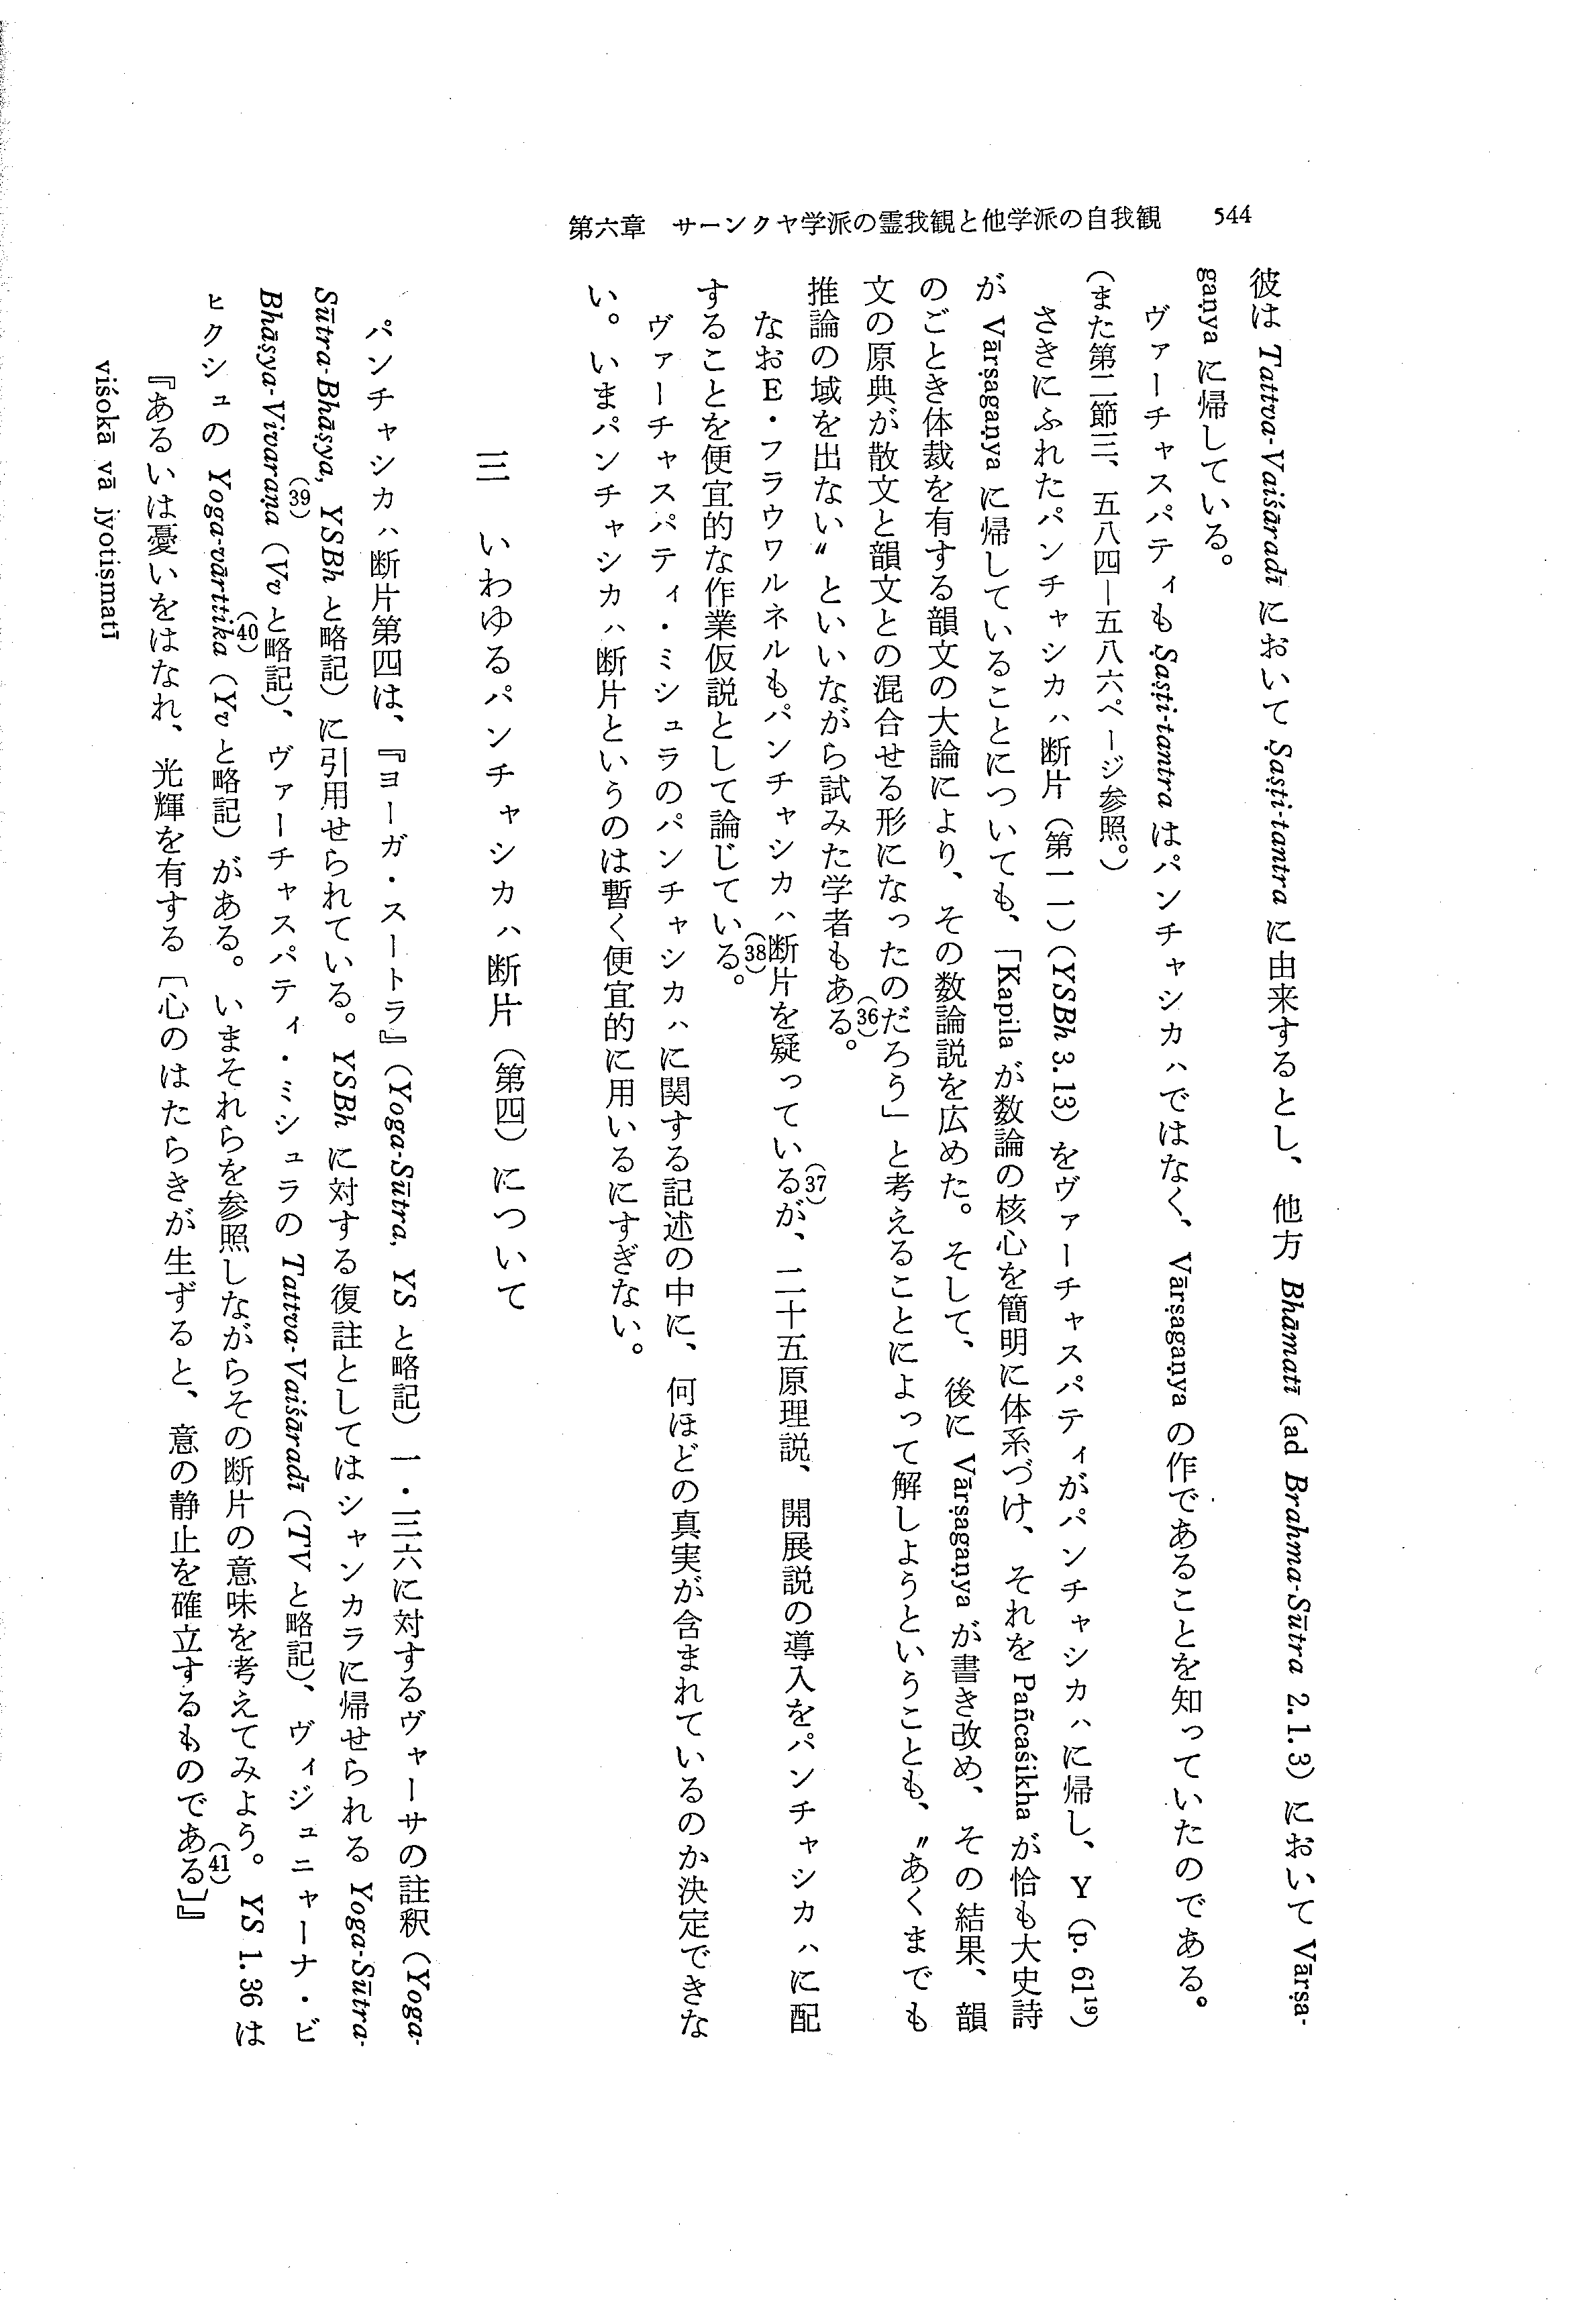 第六章　サーンクヤ学派の霊我観と他学派の自我観　544
彼は Tattva-Vaiśāradī において Ṣaṣṭi-tantra に由来するとし、他方 Bhāmatī (ad Brahma-Sūtra 2.1.3) において Vārṣa-
gaṇya に帰している。
ヴァーチャスパティも Ṣaṣṭi-tantra はパンチャシカハではなく、Vārṣagaṇya の作であることを知っていたのである。
（また第二節三、五八四―五八六ページ参照。）
さきにふれたパンチャシカハ断片（第一一）（YSBh 3.13）をヴァーチャスパティがパンチャシカハに帰し、Y（p. 61¹⁹）
が Vārṣagaṇya に帰していることについても、「Kapila が数論の核心を簡明に体系づけ、それを Pañcaśikha が恰も大史詩
のごとき体裁を有する韻文の大論により、その数論説を広めた。そして、後に Vārṣagaṇya が書き改め、その結果、韻
文の原典が散文と韻文との混合せる形になったのだろう」と考えることによって解しようということも、〝あくまでも
推論の域を出ない〟といいながら試みた学者もある。(36)
なおE・フラウワルネルもパンチャシカハ断片を疑っているが、(37)二十五原理説、開展説の導入をパンチャシカハに配
することを便宜的な作業仮説として論じている。(38)
ヴァーチャスパティ・ミシュラのパンチャシカハに関する記述の中に、何ほどの真実が含まれているのか決定できな
い。いまパンチャシカハ断片というのは暫く便宜的に用いるにすぎない。
三　いわゆるパンチャシカハ断片（第四）について
パンチャシカハ断片第四は、『ヨーガ・スートラ』（Yoga-Sūtra, YS と略記）一・三六に対するヴャーサの註釈（Yoga-
Sūtra-Bhāṣya, YSBh と略記）に引用せられている。YSBh に対する復註としてはシャンカラに帰せられる Yoga-Sūtra-
Bhāṣya-Vivaraṇa(39)（Vv と略記）、ヴァーチャスパティ・ミシュラの Tattva-Vaiśāradī（TV と略記）、ヴィジュニャーナ・ビ
ヒクシュの Yoga-vārttika(40)（Yv と略記）がある。いまそれらを参照しながらその断片の意味を考えてみよう。YS 1.36 は
『あるいは憂いをはなれ、光輝を有する〔心のはたらきが生ずると、意の静止を確立するものである〕』(41)
viśokā vā jyotiṣmatī